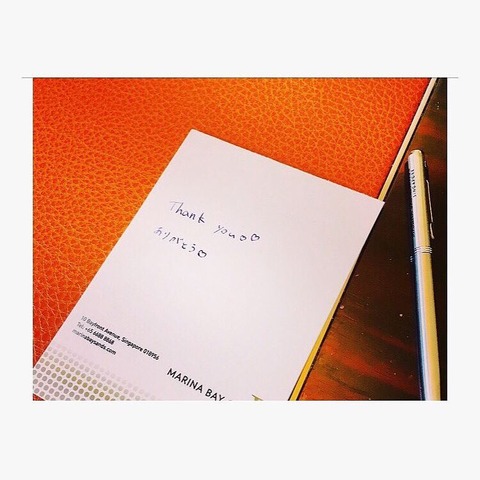 Thank you♡♡
ありがとう♡
10 Bayfront Avenue, Singapore 018956
Tel: +65 6688 8868
marinabaysands.com
MARINA BAY